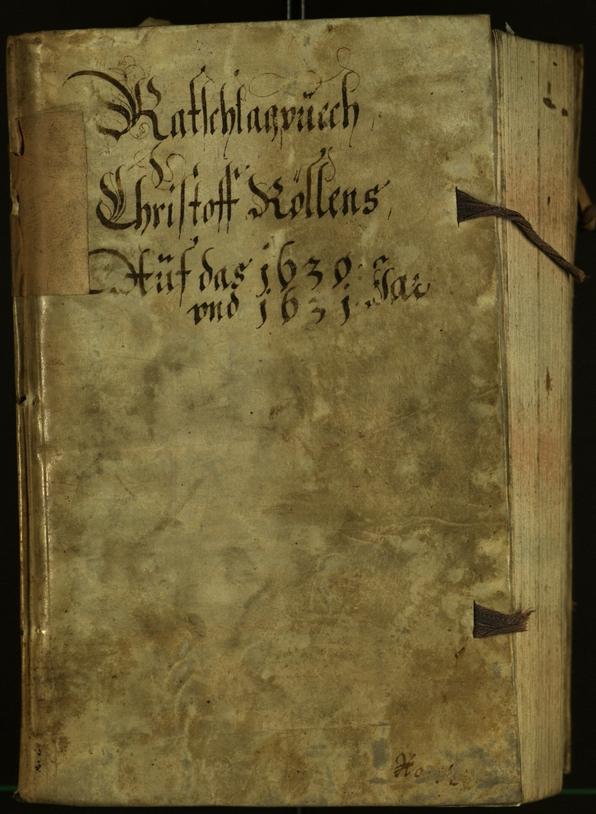 Ratschlagpuech
Christoff Röllens
Auf das 1630. Jar
vnd 1631.